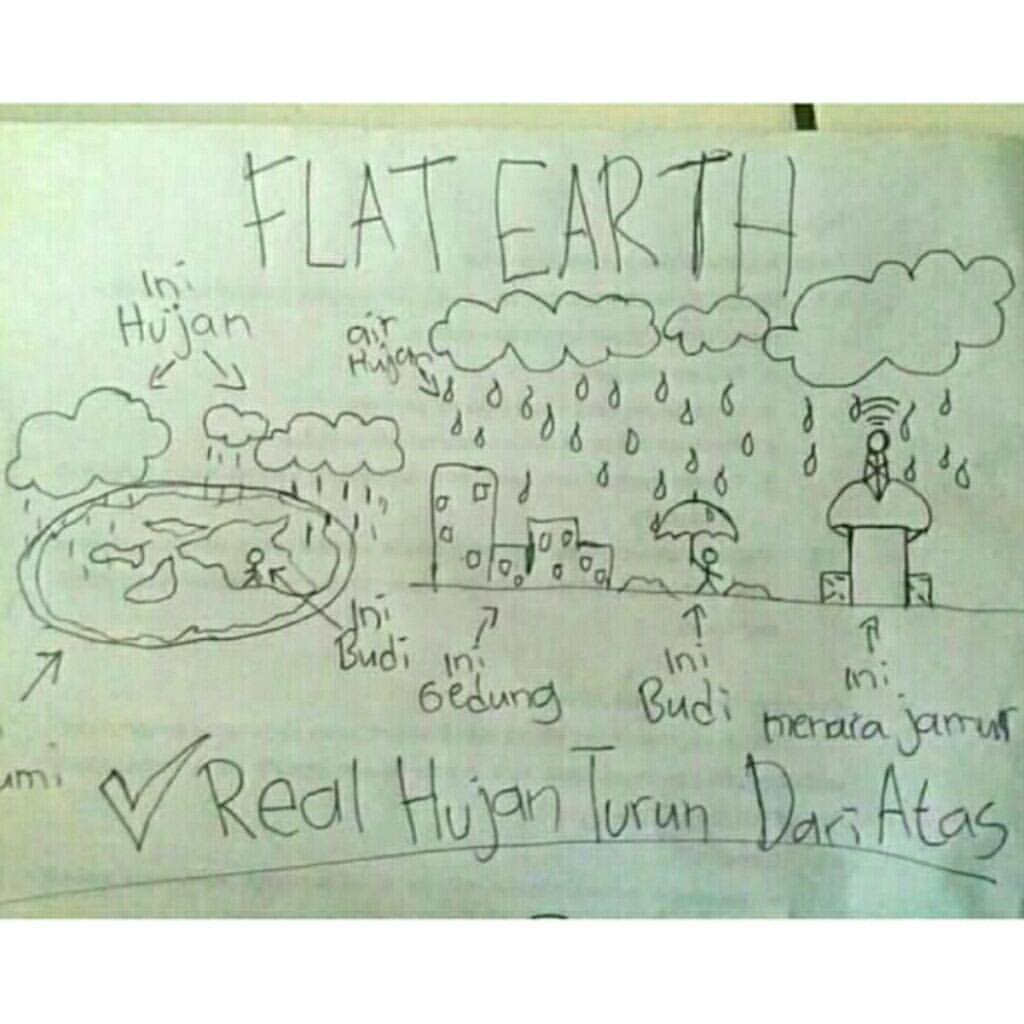 FLAT EARTH
Ini
Hujan
air
Hujan
Ini
Budi
Ini
Gedung
Ini
Budi
Ini
menara jamur
umi
Real Hujan Turun Dari Atas